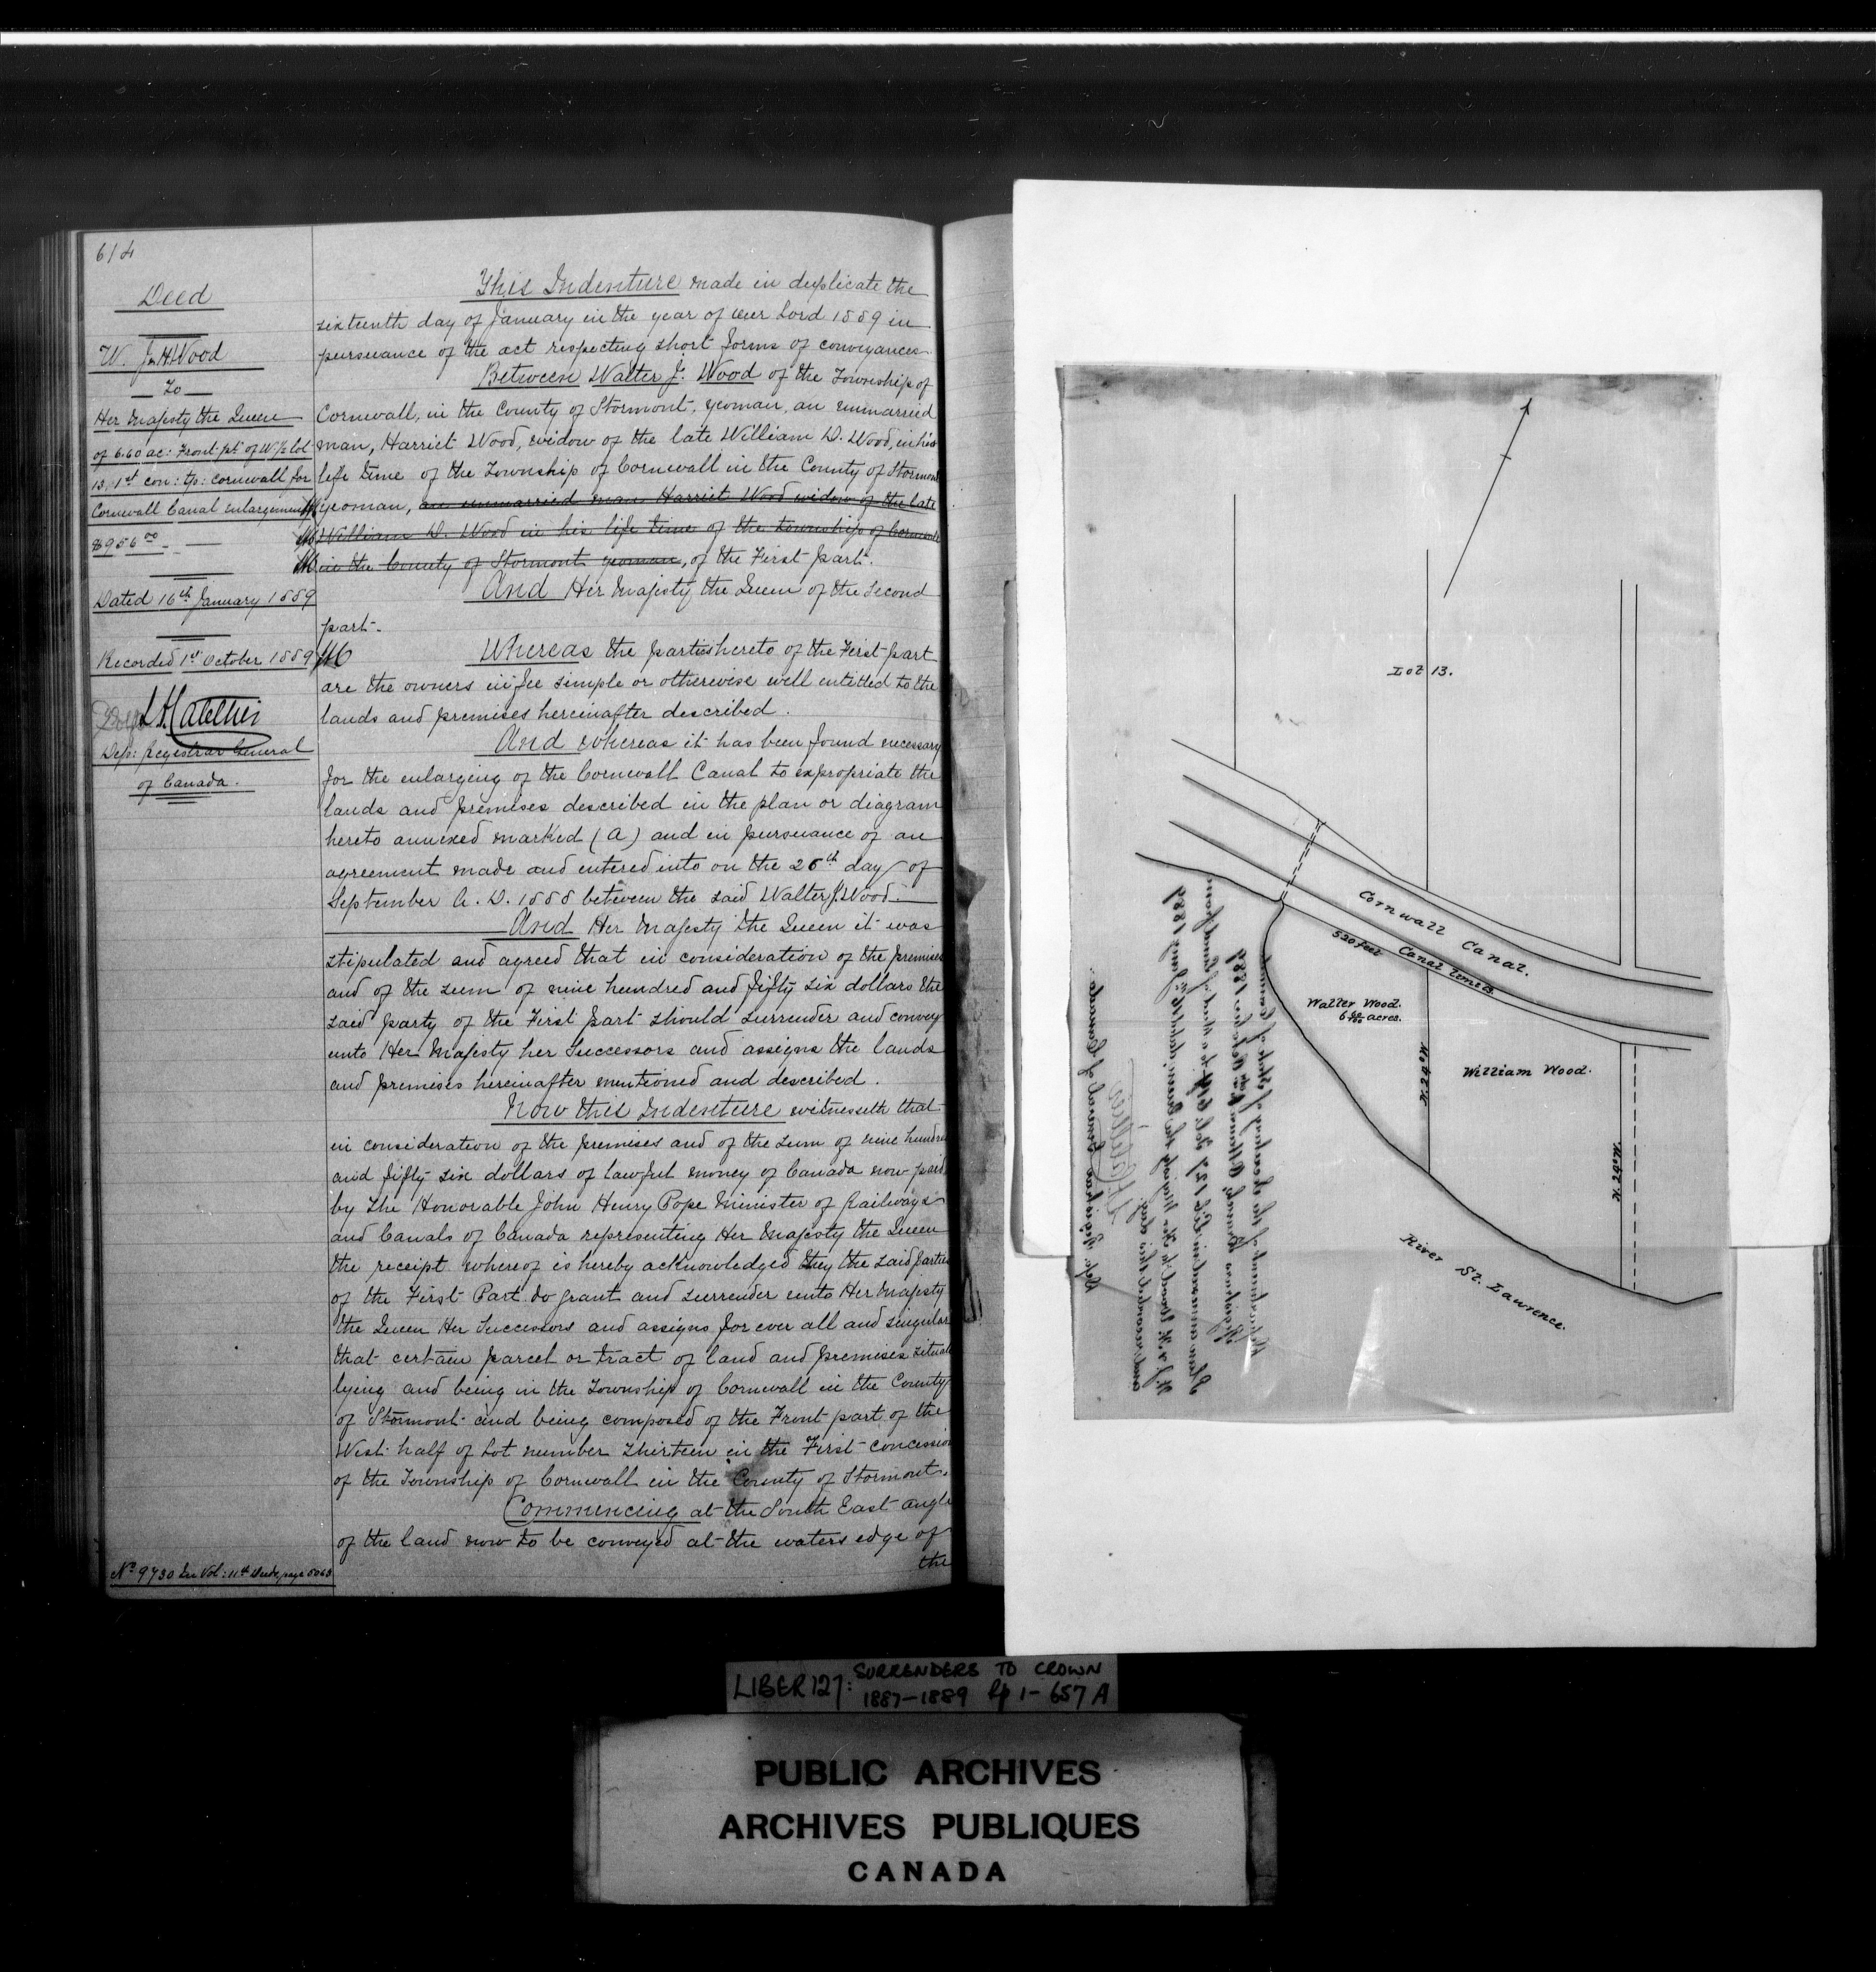 614
Deed
W. J. & H Wood
To
Her Majesty the Queen
of 6.60 ac: Front pt of W ½ lot
13, 1st con: tp: Cornwall for
Cornwall Canal enlargement
$956.00
Dated 16th January 1889
Recorded 1st October 1889
Dep: Registrar General
of Canada.
No 9730 See Vol: 11th Deeds, page
This Indenture made in duplicate the
sixteenth day of January in the year of our Lord 1889 in
pursuance of the act respecting short forms of conveyances.
Between Walter J. Wood of the Township of
Cornwall, in the County of Stormont, yeoman, an unmarried
man, Harriet Wood, widow of the late William D. Wood, in his
life time of the Township of Cornwall in the County of Stormont
yeoman, an unmarried man Harriet Wood widow of the late
William D. Wood in his life time of the township of Cornwall
in the County of Stormont yeoman, of the First part.
And Her Majesty the Queen of the Second
part.
Whereas the parties hereto of the First part
are the owners in fee simple or otherwise well entitled to the
lands and premises hereinafter described.
And whereas it has been found necessary
for the enlarging of the Cornwall Canal to expropriate the
lands and premises described in the plan or diagram
hereto annexed marked (A) and in pursuance of an
agreement made and entered into on the 26th day of
September A. D. 1888 between the said Walter J. Wood.
And Her Majesty the Queen it was
stipulated and agreed that in consideration of the premises
and of the sum of nine hundred and fifty six dollars the
said party of the First part should surrender and convey
unto Her Majesty her Successors and assigns the lands
and premises hereinafter mentioned and described.
Now this Indenture witnesseth that
in consideration of the premises and of the sum of nine hundred
and fifty six dollars of lawful money of Canada now paid
by The Honorable John Henry Pope Minister of Railways
and Canals of Canada representing Her Majesty the Queen
the receipt whereof is hereby acknowledged they the said parties
of the First Part do grant and surrender unto Her Majesty
the Queen Her Successors and assigns for ever all and singular
that certain parcel or tract of land and premises situate
lying and being in the Township of Cornwall in the County
of Stormont and being composed of the Front part of the
West half of Lot number Thirteen in the First concession
of the Township of Cornwall in the County of Stormont.
Commencing at the South East angle
of the land now to be conveyed at the waters edge of
the
Lot 13.
Cornwall Canal.
520 feet Canal limits.
Walter Wood.
6 60/100 acres.
N. 24° W
William Wood.
N. 24° W
River St. Lawrence.
Department of the Secretary of State of Canada
Registrar's Branch, Ottawa 1st October 1889
Plan annexed in Lib 127 Fol 614 to a deed of land from
W. J. & H. Wood to Her Majesty the Queen, dated 16th Jany 1889
and recorded this day.
Dep. Registrar General of Canada.
LIBER 127: SURRENDERS TO CROWN
1887-1889 pp 1-657A
PUBLIC ARCHIVES
ARCHIVES PUBLIQUES
CANADA